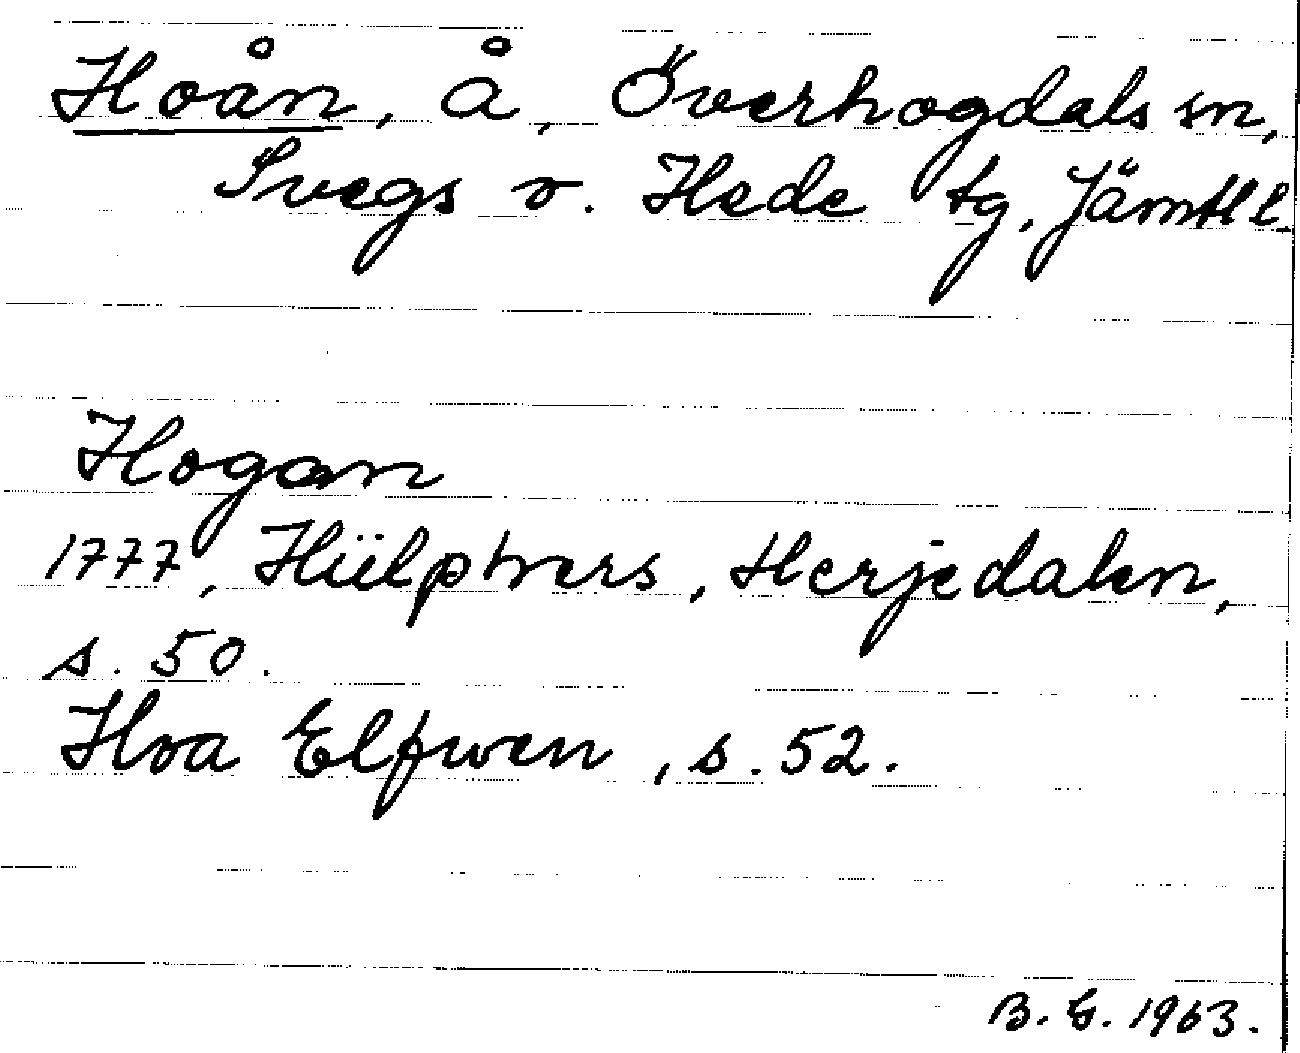 Hoån, å, Överhogdals sn,
Svegs o. Hede tg. Jämtl l.
Hogan
1777, Hülphers, Herjedalen,
s. 50.
Hoa Elfwen, s. 52.
B. G. 1963.